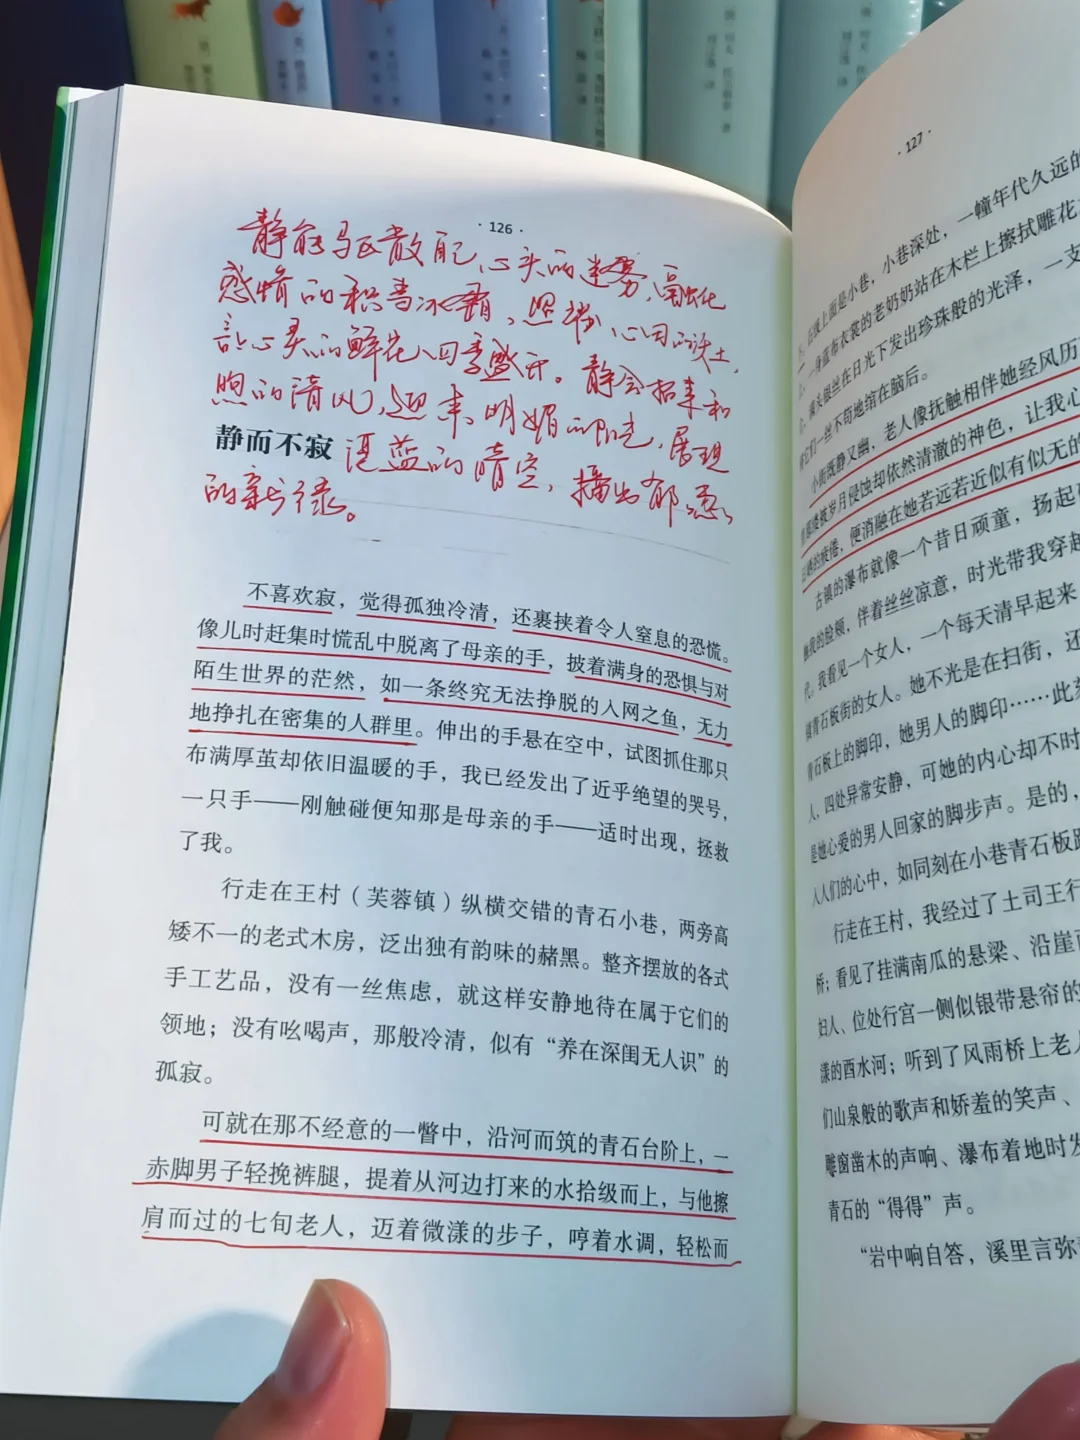 · 126 ·
静能驱散 心头的迷雾,融化
感情的积雪冰霜,照 心田 沃土,
让心灵的鲜花四季盛开。静会招来和
煦的清风,迎来明媚的阳光,展现
静而不寂 湛蓝的晴空,播出郁葱
的新绿。
不喜欢寂,觉得孤独冷清,还裹挟着令人窒息的恐慌。
像儿时赶集时慌乱中脱离了母亲的手,披着满身的恐惧与对
陌生世界的茫然,如一条终究无法挣脱的入网之鱼,无力
地挣扎在密集的人群里。伸出的手悬在空中,试图抓住那只
布满厚茧却依旧温暖的手,我已经发出了近乎绝望的哭号,
一只手——刚触碰便知那是母亲的手——适时出现,拯救
了我。
行走在王村(芙蓉镇)纵横交错的青石小巷,两旁高
矮不一的老式木房,泛出独有韵味的赭黑。整齐摆放的各式
手工艺品,没有一丝焦虑,就这样安静地待在属于它们的
领地;没有吆喝声,那般冷清,似有“养在深闺无人识”的
孤寂。
可就在那不经意的一瞥中,沿河而筑的青石台阶上,一
赤脚男子轻挽裤腿,提着从河边打来的水拾级而上,与他擦
肩而过的七旬老人,迈着微漾的步子,哼着水调,轻松而
· 127 ·
石级上面是小巷,小巷深处,一幢年代久远的
一身蓝布衣裳的老奶奶站在木栏上擦拭雕花
满头银丝在日光下发出珍珠般的光泽,一支
将它们一丝不苟地绾在脑后。
小街既静又幽,老人像抚触相伴她经风历
曾那缕被岁月侵蚀却依然清澈的神色,让我心
的疲倦,便消融在她若远若近似有似无的
古镇的瀑布就像一个昔日顽童,扬起
我的脸颊,伴着丝丝凉意,时光带我穿越
代。我看见一个女人,一个每天清早起来
青石板街的女人。她不光是在扫街,还
青石板上的脚印,她男人的脚印……此
人,四处异常安静,可她的内心却不时
是她心爱的男人回家的脚步声。是的,
人人们的心中,如同刻在小巷青石板
行走在王村,我经过了土司王行
桥;看见了挂满南瓜的悬梁、沿崖
妇人、位处行宫一侧似银带悬帘的
漾的酉水河;听到了风雨桥上老
们山泉般的歌声和娇羞的笑声、
雕窗凿木的声响、瀑布着地时发
青石的“得得”声。
“岩中响自答,溪里言弥